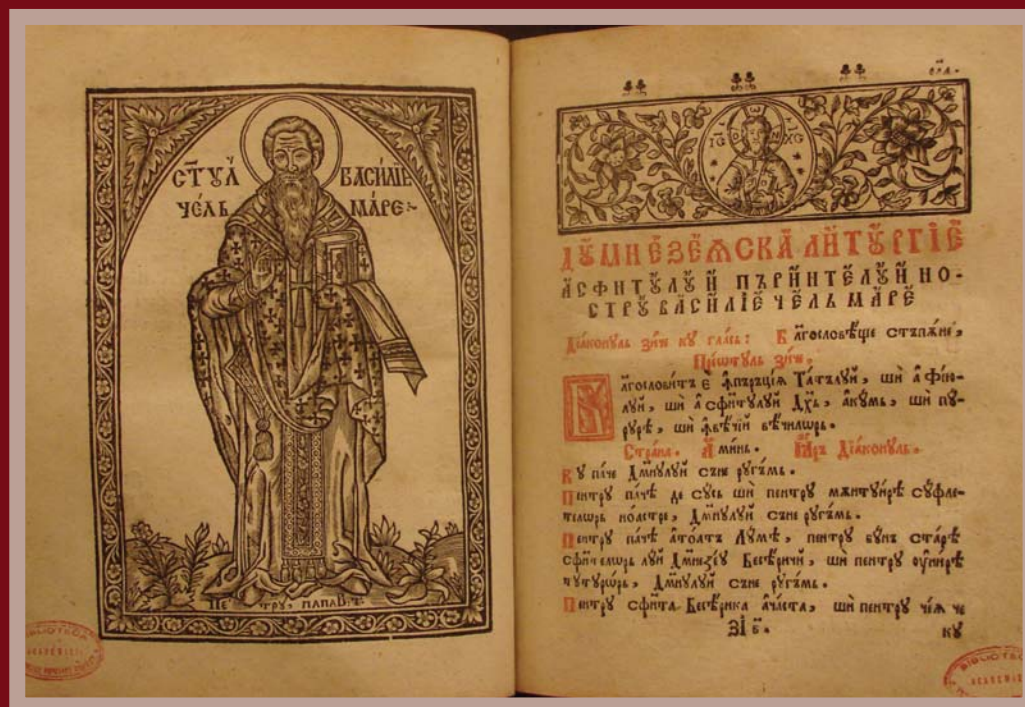 СТ҃УЛ ВАСИЛИЕ
ЧЕЛЬ МАРЕ
ПЕТРУ, ПАПАВИТ.
ІС ХС
Ѡ О Н
ДУМНЕЗЕѦСКА ЛИТУРГІЕ
А СФИТУЛУЙ ПЪРИНТЕЛУЙ НО-
СТРУ ВАСИЛІЕ ЧЕЛЬ МАРЕ
Діаконуль зиче ку глась: Бл҃гословѣще стъпѫне,
Преѡтуль зиче.
Бл҃гословитъ е ꙟпъръціѧ Татълуй, ши а Фїю-
луй, ши а сфитулуй Дх҃ь, акумь, ши пу-
рурѣ, ши ꙟвѣчїй вѣчилѡрь.
Страна. Аминь. Іаръ Діаконуль.
Ку паче Дм҃нулуй съне ругъмь.
Пентру пачѣ де сусь ши пентру мѫнтуирѣ суфле-
телѡрь ноастре, Дм҃нулуй съне ругъмь.
Пентру пачѣ атоатъ Лумѣ, пентру буна старѣ
сфителѡрь луй Дм҃незеу Бесѣричи, ши пентру оунирѣ
тутурѡрь, Дм҃нулуй съне ругъмь.
Пентру сфѫта Бесѣрика ачаста, ши пентру чѣѧ че
ЗІ в҃. ку
BIBLIOTECA
ACADEMIEI
BIBLIOTECA
ACADEMIEI